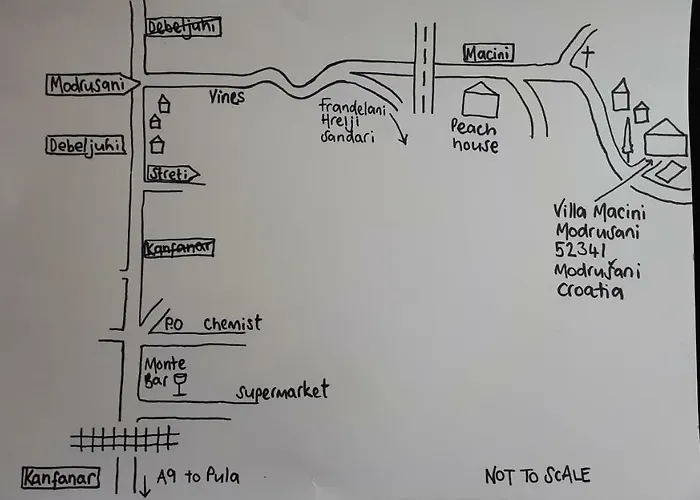 Debeljuhi
Macini
Modrusani
Vines
Frandelani
Hrelji
Sandari
Peach
house
Debeljuhi
Streti
Villa Macini
Modrusani
52341
Modružani
Croatia
Kanfanar
P.O Chemist
Monte
Bar
Supermarket
Kanfanar
A9 to Pula
NOT TO SCALE